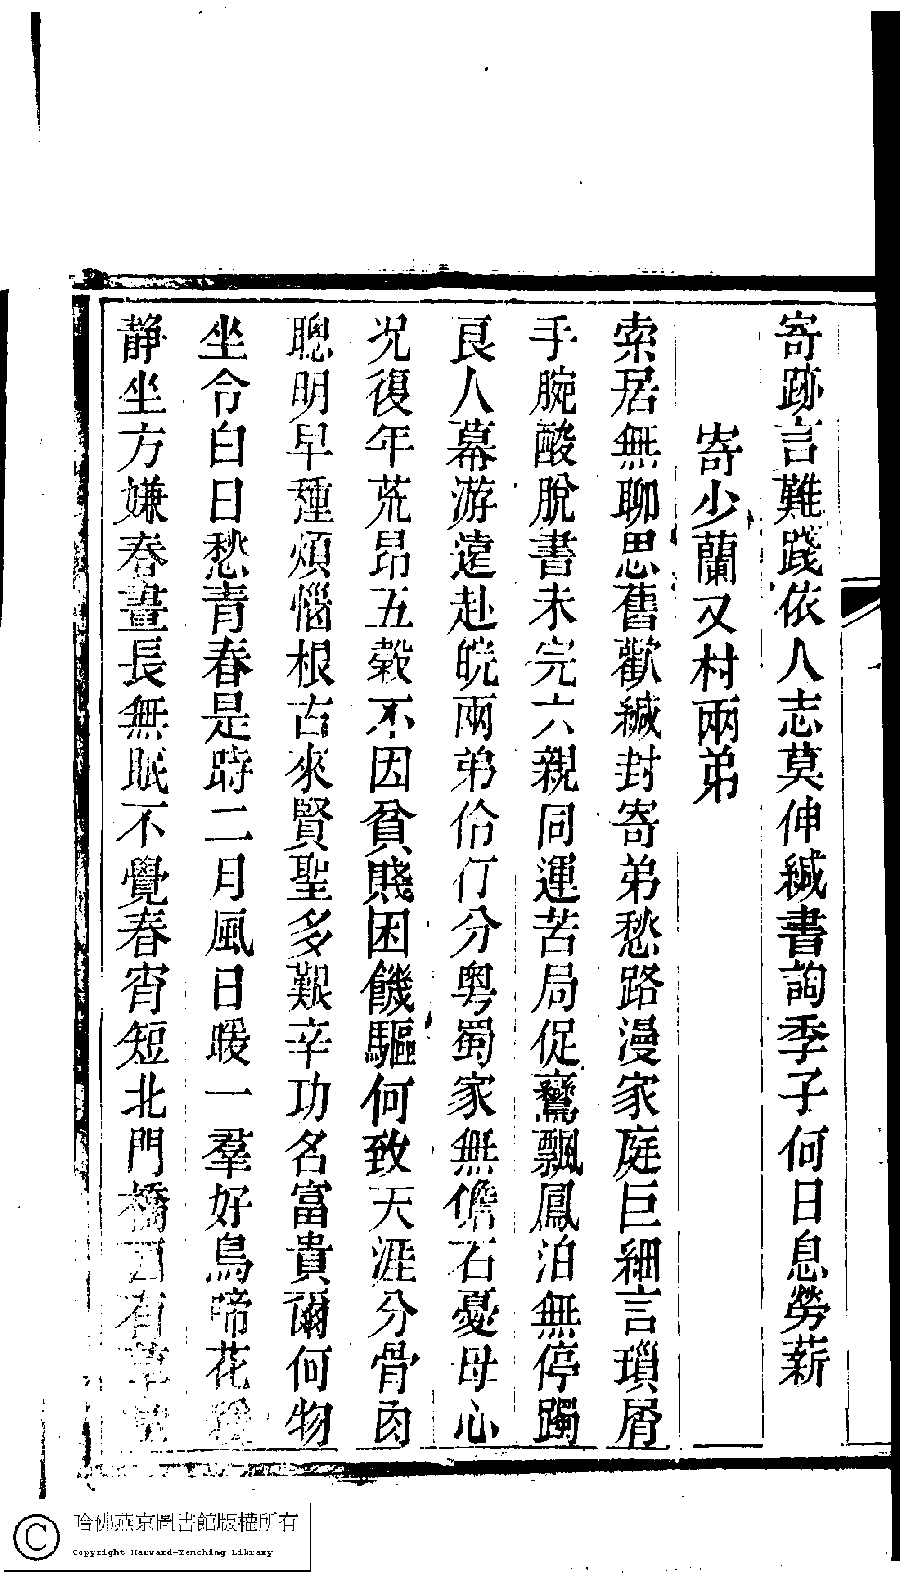 寄跡言難踐依人志莫伸緘書詢季子何日息勞薪
寄少蘭又村兩弟
索居無聊思舊歡緘封寄弟愁路漫家庭巨細言瑣屑
手腕酸脫書未完六親同運苦局促鸞飄鳳泊無停躅
良人幕游遠赴皖兩弟伶仃分粤蜀家無儋石憂母心
況復年荒昂五穀不因貧賤困饑驅何致天涯分骨肉
聰明早種煩惱根古來賢聖多艱辛功名富貴爾何物
坐令白日愁青春是時二月風日暖一羣好鳥啼花
靜坐方嫌春晝長無眠不覺春宵短北門橋西有草
哈佛燕京圖書館版權所有
Copyright Harvard-Yenching Library